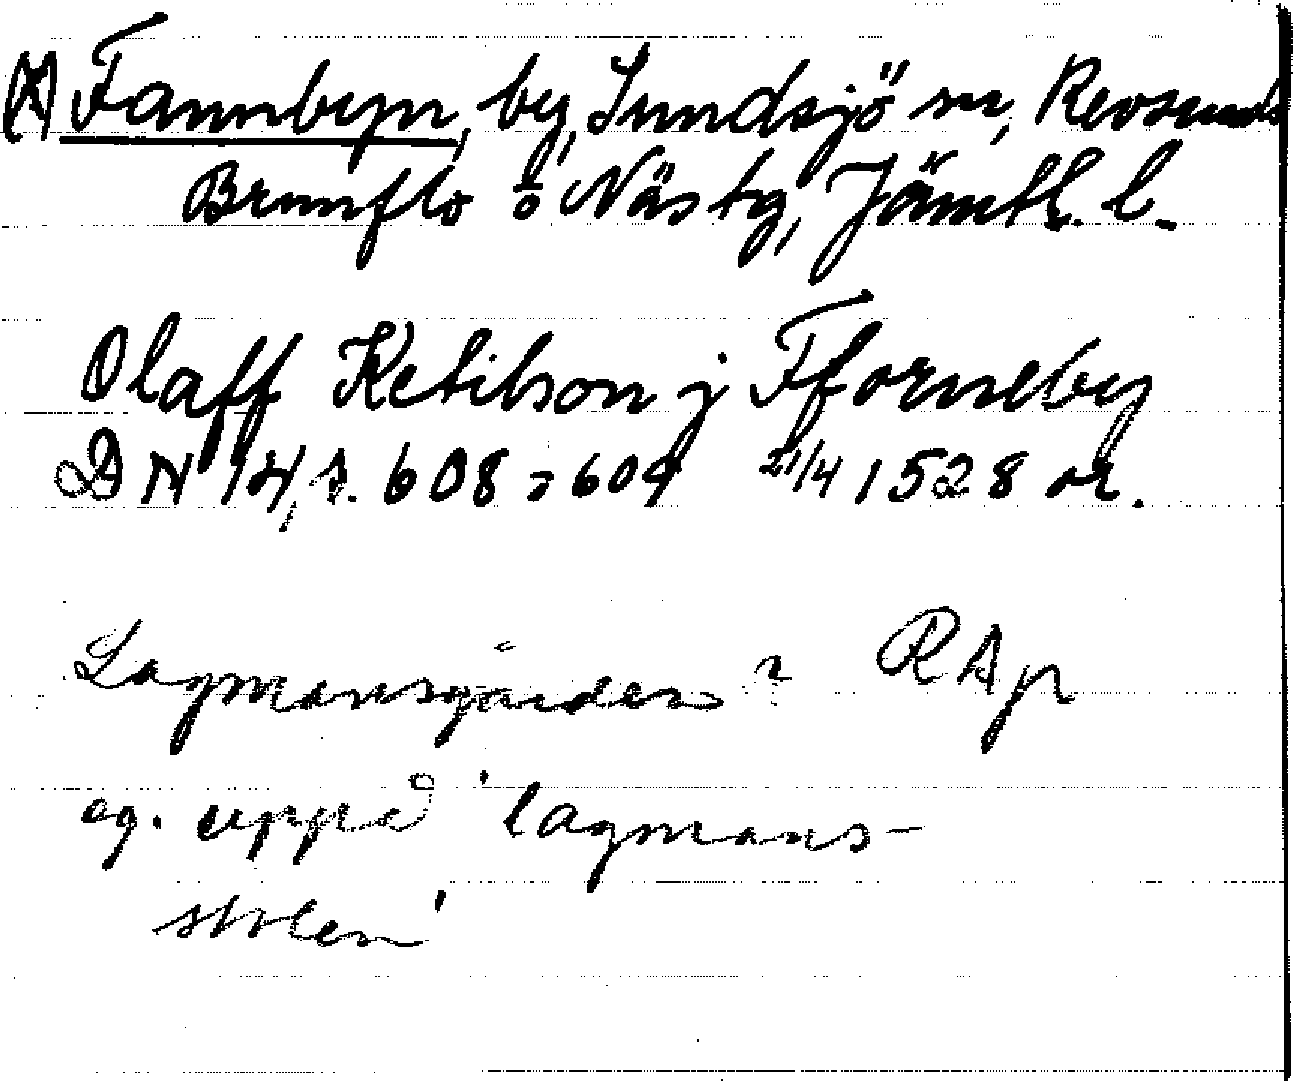 (X) Fannbyn, by, Sundsjö sn, Revsunds
Brunflo o Näs tg, Jämtl. l.
Olaff Ketilson j Fforneby
DN 14, s. 608, 609 21/4 1528 or.
Lagmansgården ? RAp
ag. uppå 'lagmans-
stolen'